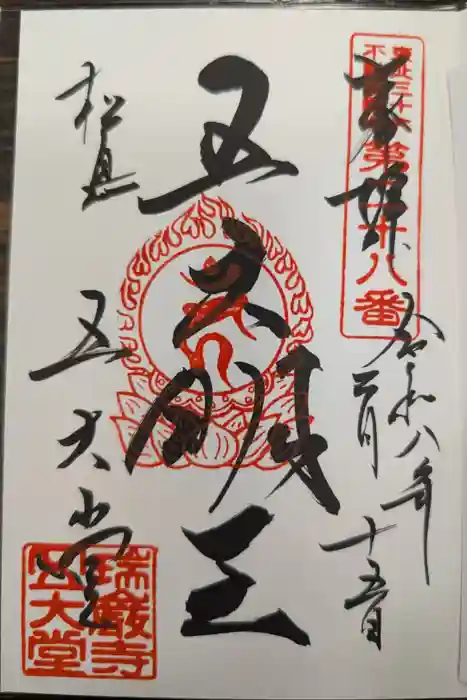 奉拝
東北三十六
不動
第二十八番
令和八年
二月十五日
五大明王
松島
五大堂
瑞巌寺
五大堂